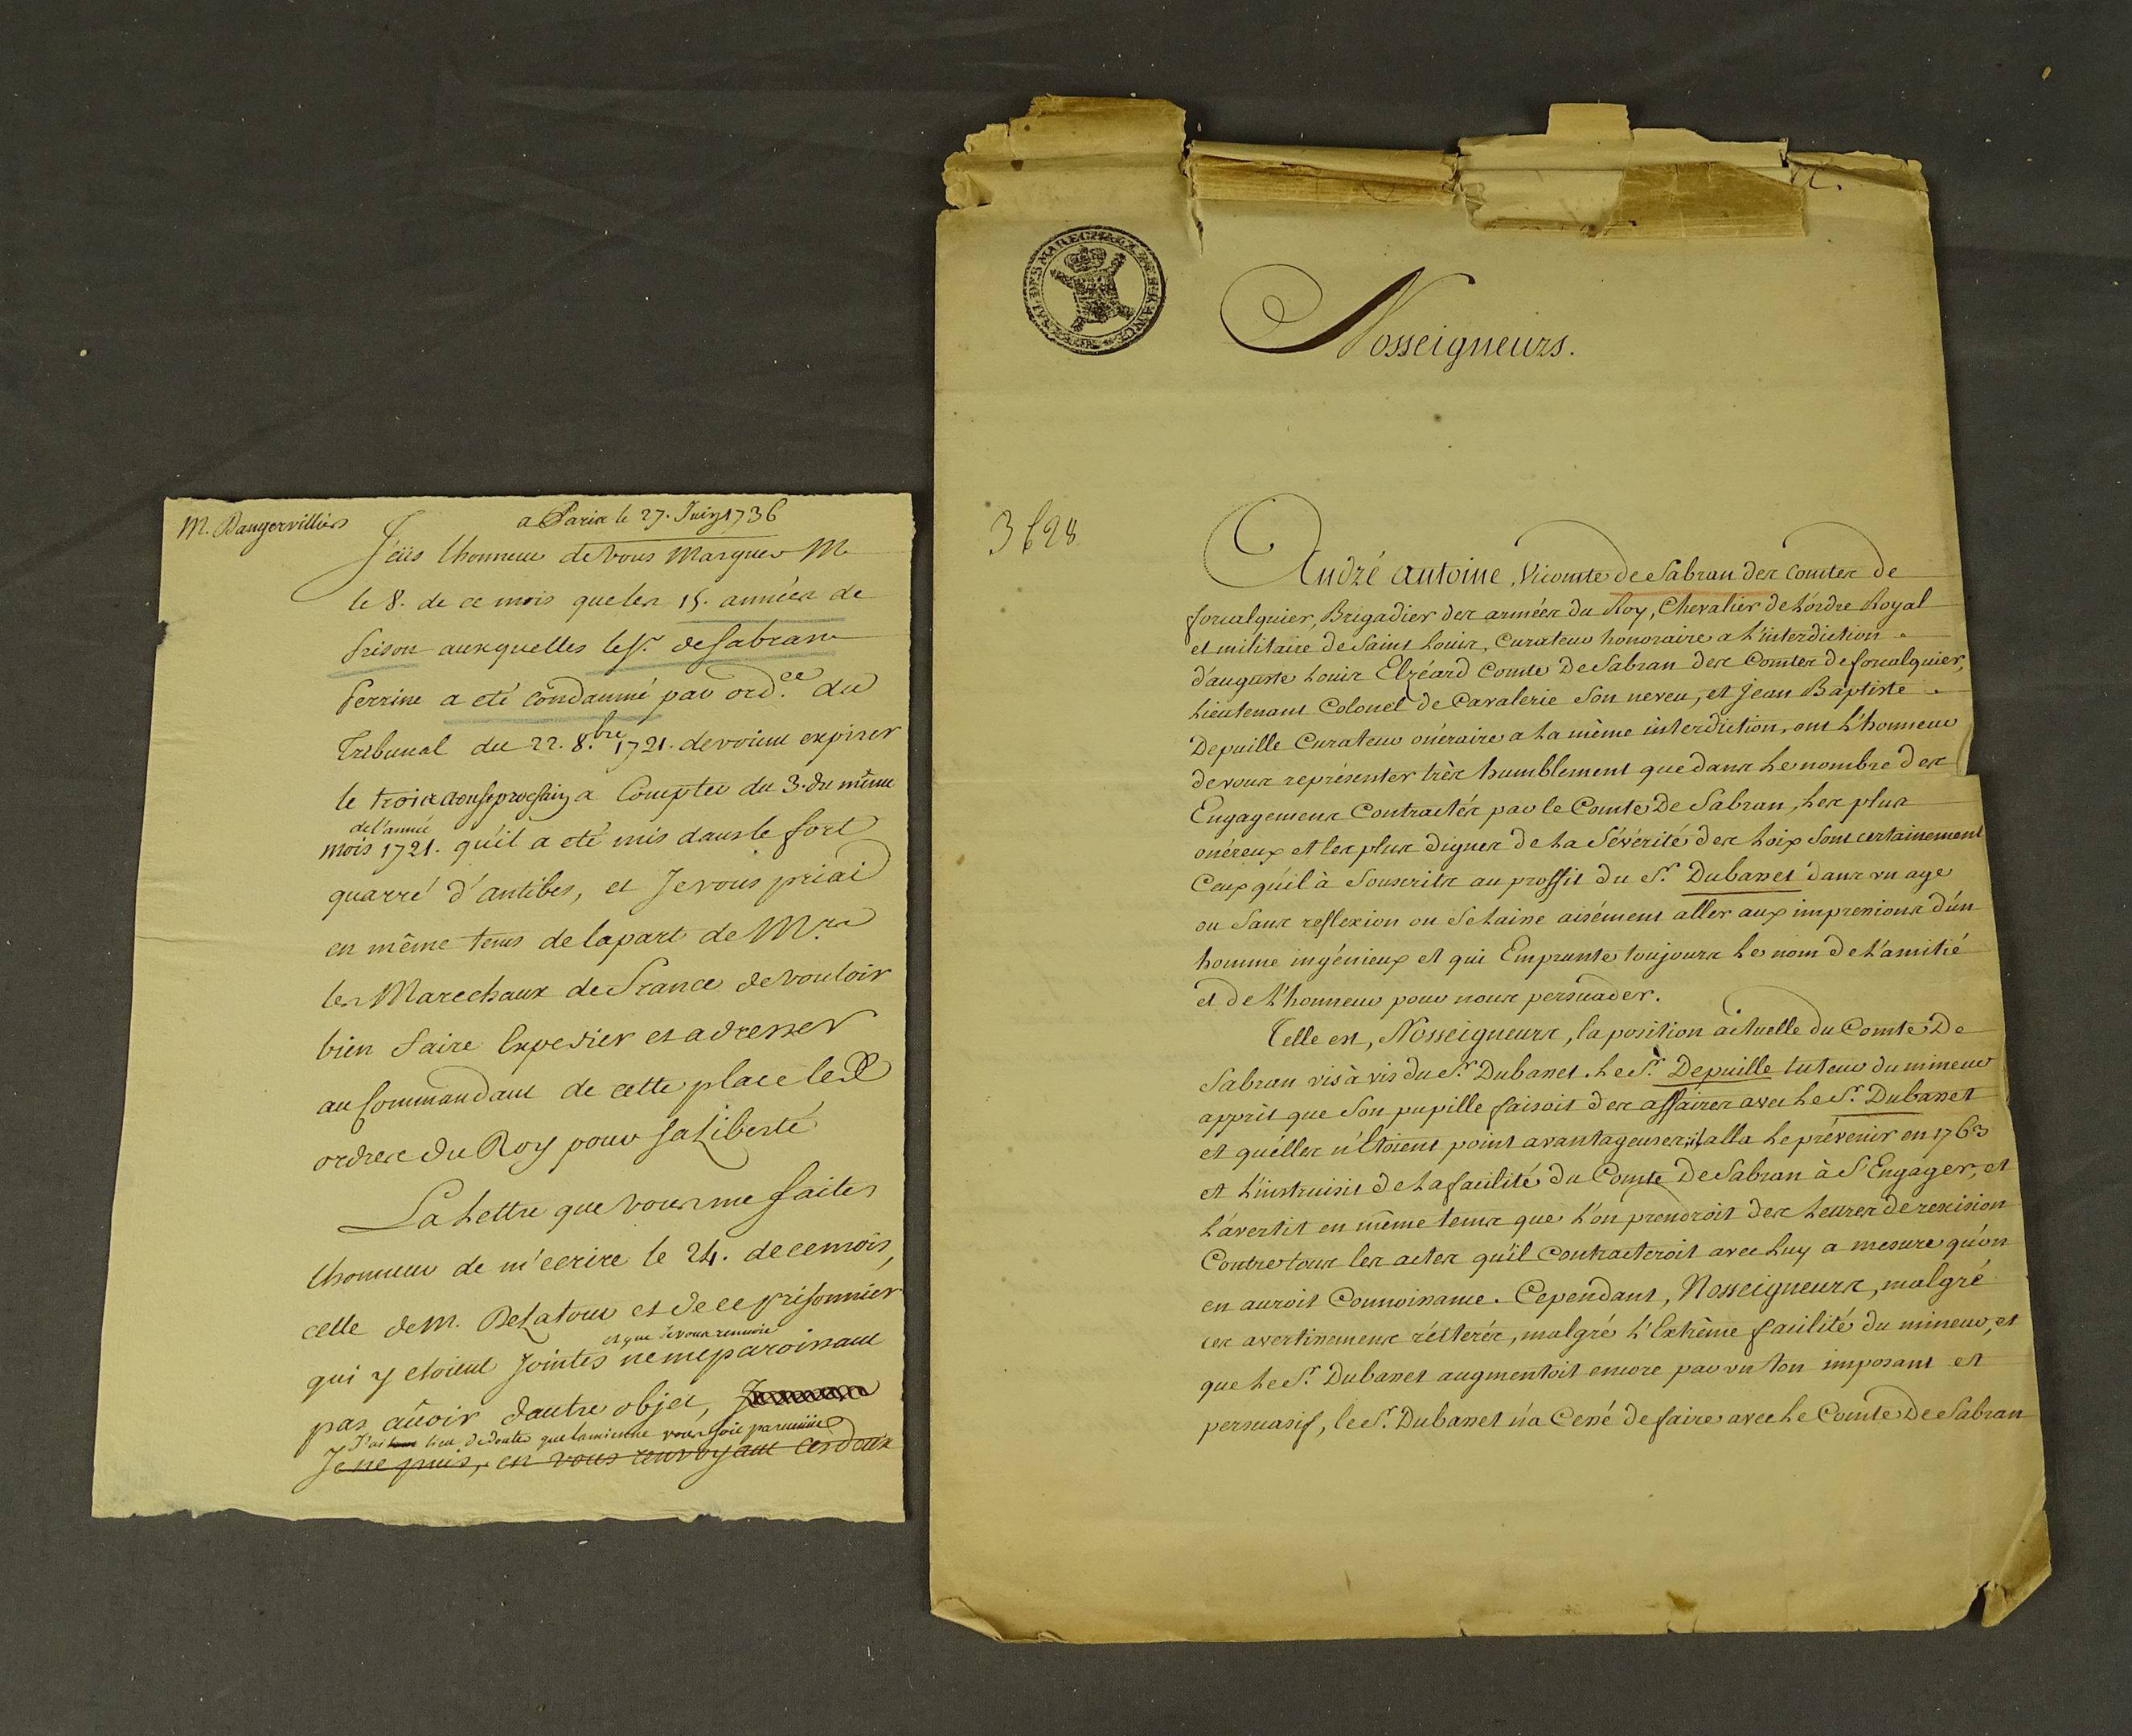 M. Dangervilliers
a Paris le 27. Juin 1736
J'eus lhonneur de vous Marquer M.
le 8. de ce mois que les 15. années de
prison auxquelles le Sr. de Sabran
Perrine a eté condamné par ordce. du
Tribunal du 22. 8.bre 1721. devoient expirer
le trois aoust prochain a Compter du 3. du même
de l'année
mois 1721. qu'il a eté mis dans le fort
quarré d'antibes, et Je vous priai
en même tems de la part de Mrs
les Marechaux de France de vouloir
bien faire Expedier et adresser
au Commandant de cette place les
ordres du Roy pour sa Liberté
La Lettre que vous me faites
lhonneur de m'ecrire le 24. de ce mois,
celle de M. De Latour et de ce prisonnier
et que Je vous renvoie
qui y etoient Jointes ne me paroissant
pas avoir d'autre objet,
J'ai lieu de douter que la mienne vous soit parvenüe
Je ne puis, en vous renvoyant ces deux
TRIBUNAL DES MARECHAUX DE FRANCE
Nosseigneurs.
3628
André Antoine, Vicomte de Sabran des Comtes de
forcalquier, Brigadier des armées du Roy, Chevalier de L'ordre Royal
et militaire de Saint Louis, Curateur honoraire a L'interdiction
d'auguste Louis Elzéard Comte De Sabran des Comtes de forcalquier,
Lieutenant Colonel de Cavalerie Son neveu, et Jean Baptiste
Depuille Curateur onéraire a la même interdiction, ont L'honneur
de vous représenter très humblement que dans Le nombre des
Engagemens Contractés par le Comte De Sabran, Les plus
onéreux et les plus dignes de La Sévérité des Loix Sont certainement
Ceux qu'il à Souscrits au proffit du Sr. Dubasset dans un age
ou Sans reflexion on Se Laisse aisément aller aux impressions d'un
homme ingénieux et qui Emprunte toujours Le nom de L'amitié
et de L'honneur pour nous persuader.
Telle est, Nosseigneurs, la position actuelle du Comte De
Sabran vis à vis du Sr. Dubasset. Le Sr. Depuille tuteur du mineur
apprit que Son pupille faisoit des affaires avec Le Sr. Dubasset
et qu'elles n'étoient point avantageuses; il alla Le prévenir en 1763
et L'instruisit de La facilité du Comte De Sabran à S'Engager, et
L'avertit en même tems que L'on prendroit des Lettres de rescision
Contre tous les actes qu'il Contracteroit avec Luy a mesure qu'on
en auroit Connoissance. Cependant, Nosseigneurs, malgré
ces avertissemens réiterés, malgré L'Extrême facilité du mineur, et
que Le Sr. Dubasset augmentoit encore par un ton imposant et
persuasif, le Sr. Dubasset n'a Cessé de faire avec Le Comte De Sabran